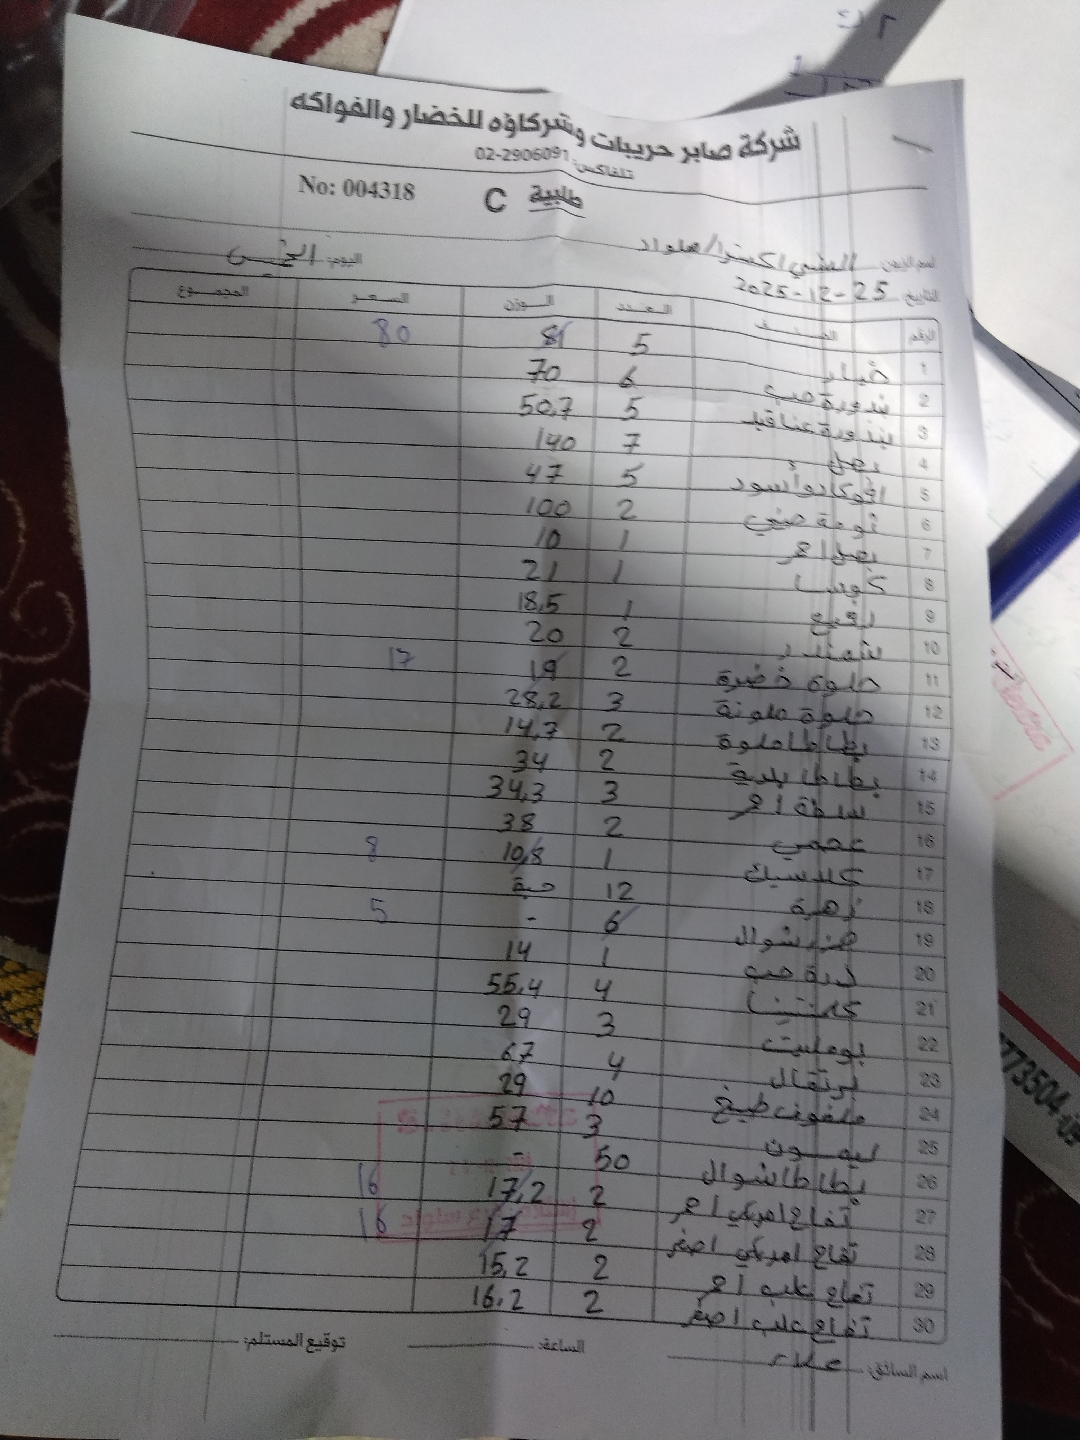 شركة صابر حريبات وشركاؤه للخضار والفواكه
تلفاكس: 02-2906091
طلبية C No: 004318
اسم الزبون: اكسترا/سلواد اليوم: الخميس
التاريخ 25-12-2025
الرقم الصنف العدد الوزن السعر المجموع
1 خيار 5 81 80
2 بندورة حب 6 70
3 بندورة عناقيد 5 50,7
4 بصل 7 140
5 افوكادو أسود 5 47
6 ثومة صيني 2 100
7 بصل احمر 1 10
8 كوسا 1 21
9 رفيع 1 18,5
10 شمندر 2 20
11 حلوة خضرة 2 19 17
12 حلوة ملونة 3 28,2
13 بطاطا حلوة 2 14,7
14 بطاطا بلدية 2 34
15 سلطة احمر 3 34,3
16 عجمي 2 38
17 كلاسيك 1 10,8 8
18 زهرة 12 حبة
19 جزر شوال 6 - 5
20 درة حب 1 14
21 كلمنتينا 4 55,4
22 بومليت 3 29
23 برتقال 4 67
24 ملفوف طبيخ 10 29
25 ليمون 3 57
26 بطاطا شوال 50 -
27 تفاح امريكي احمر 2 17,2 16
28 تفاح امريكي اصفر 2 17 16
29 تفاح علب احمر 2 15,2
30 تفاح علب اصفر 2 16,2
اسم السائق: علاء الساعة: توقيع المستلم: